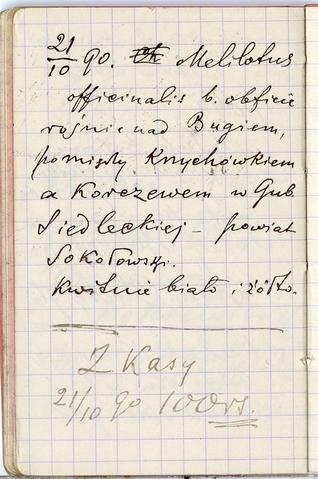 21/10 90. Melilotus
officinalis b. obficie
rośnie nad Bugiem,
pomiędzy Knychówkiem
a Korczewem w Gub.
Siedleckiej – powiat
Sokołowski.
Kwitnie biało i żółto.
Z Kasy
21/10 90 100 rs.